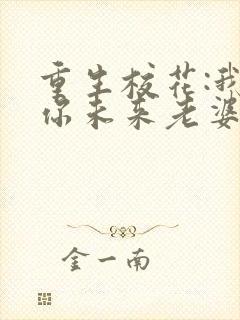 重生校花:我
你未来老婆
金一南